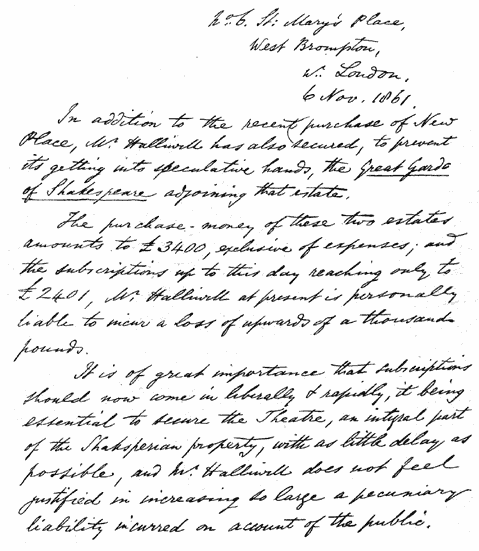 No. 6. St: Mary's Place,
West Brompton,
W. London.
6 Nov. 1861.
In addition to the recent purchase of New
Place, Mr. Halliwell has also secured, to prevent
its getting into speculative hands, the Great Garde
of Shakespeare adjoining that estate.
The purchase-money of these two estates
amounts to £3400, exclusive of expenses; and
the subscriptions up to this day reaching only to
£2401, Mr. Halliwell at present is personally
liable to incur a loss of upwards of a thousand
pounds.
It is of great importance that subscriptions
should now come in liberally & rapidly, it being
essential to secure the Theatre, an integral part
of the Shaksperian property, with as little delay as
possible, and Mr. Halliwell does not feel
justified in increasing so large a pecuniary
liability incurred on account of the public.